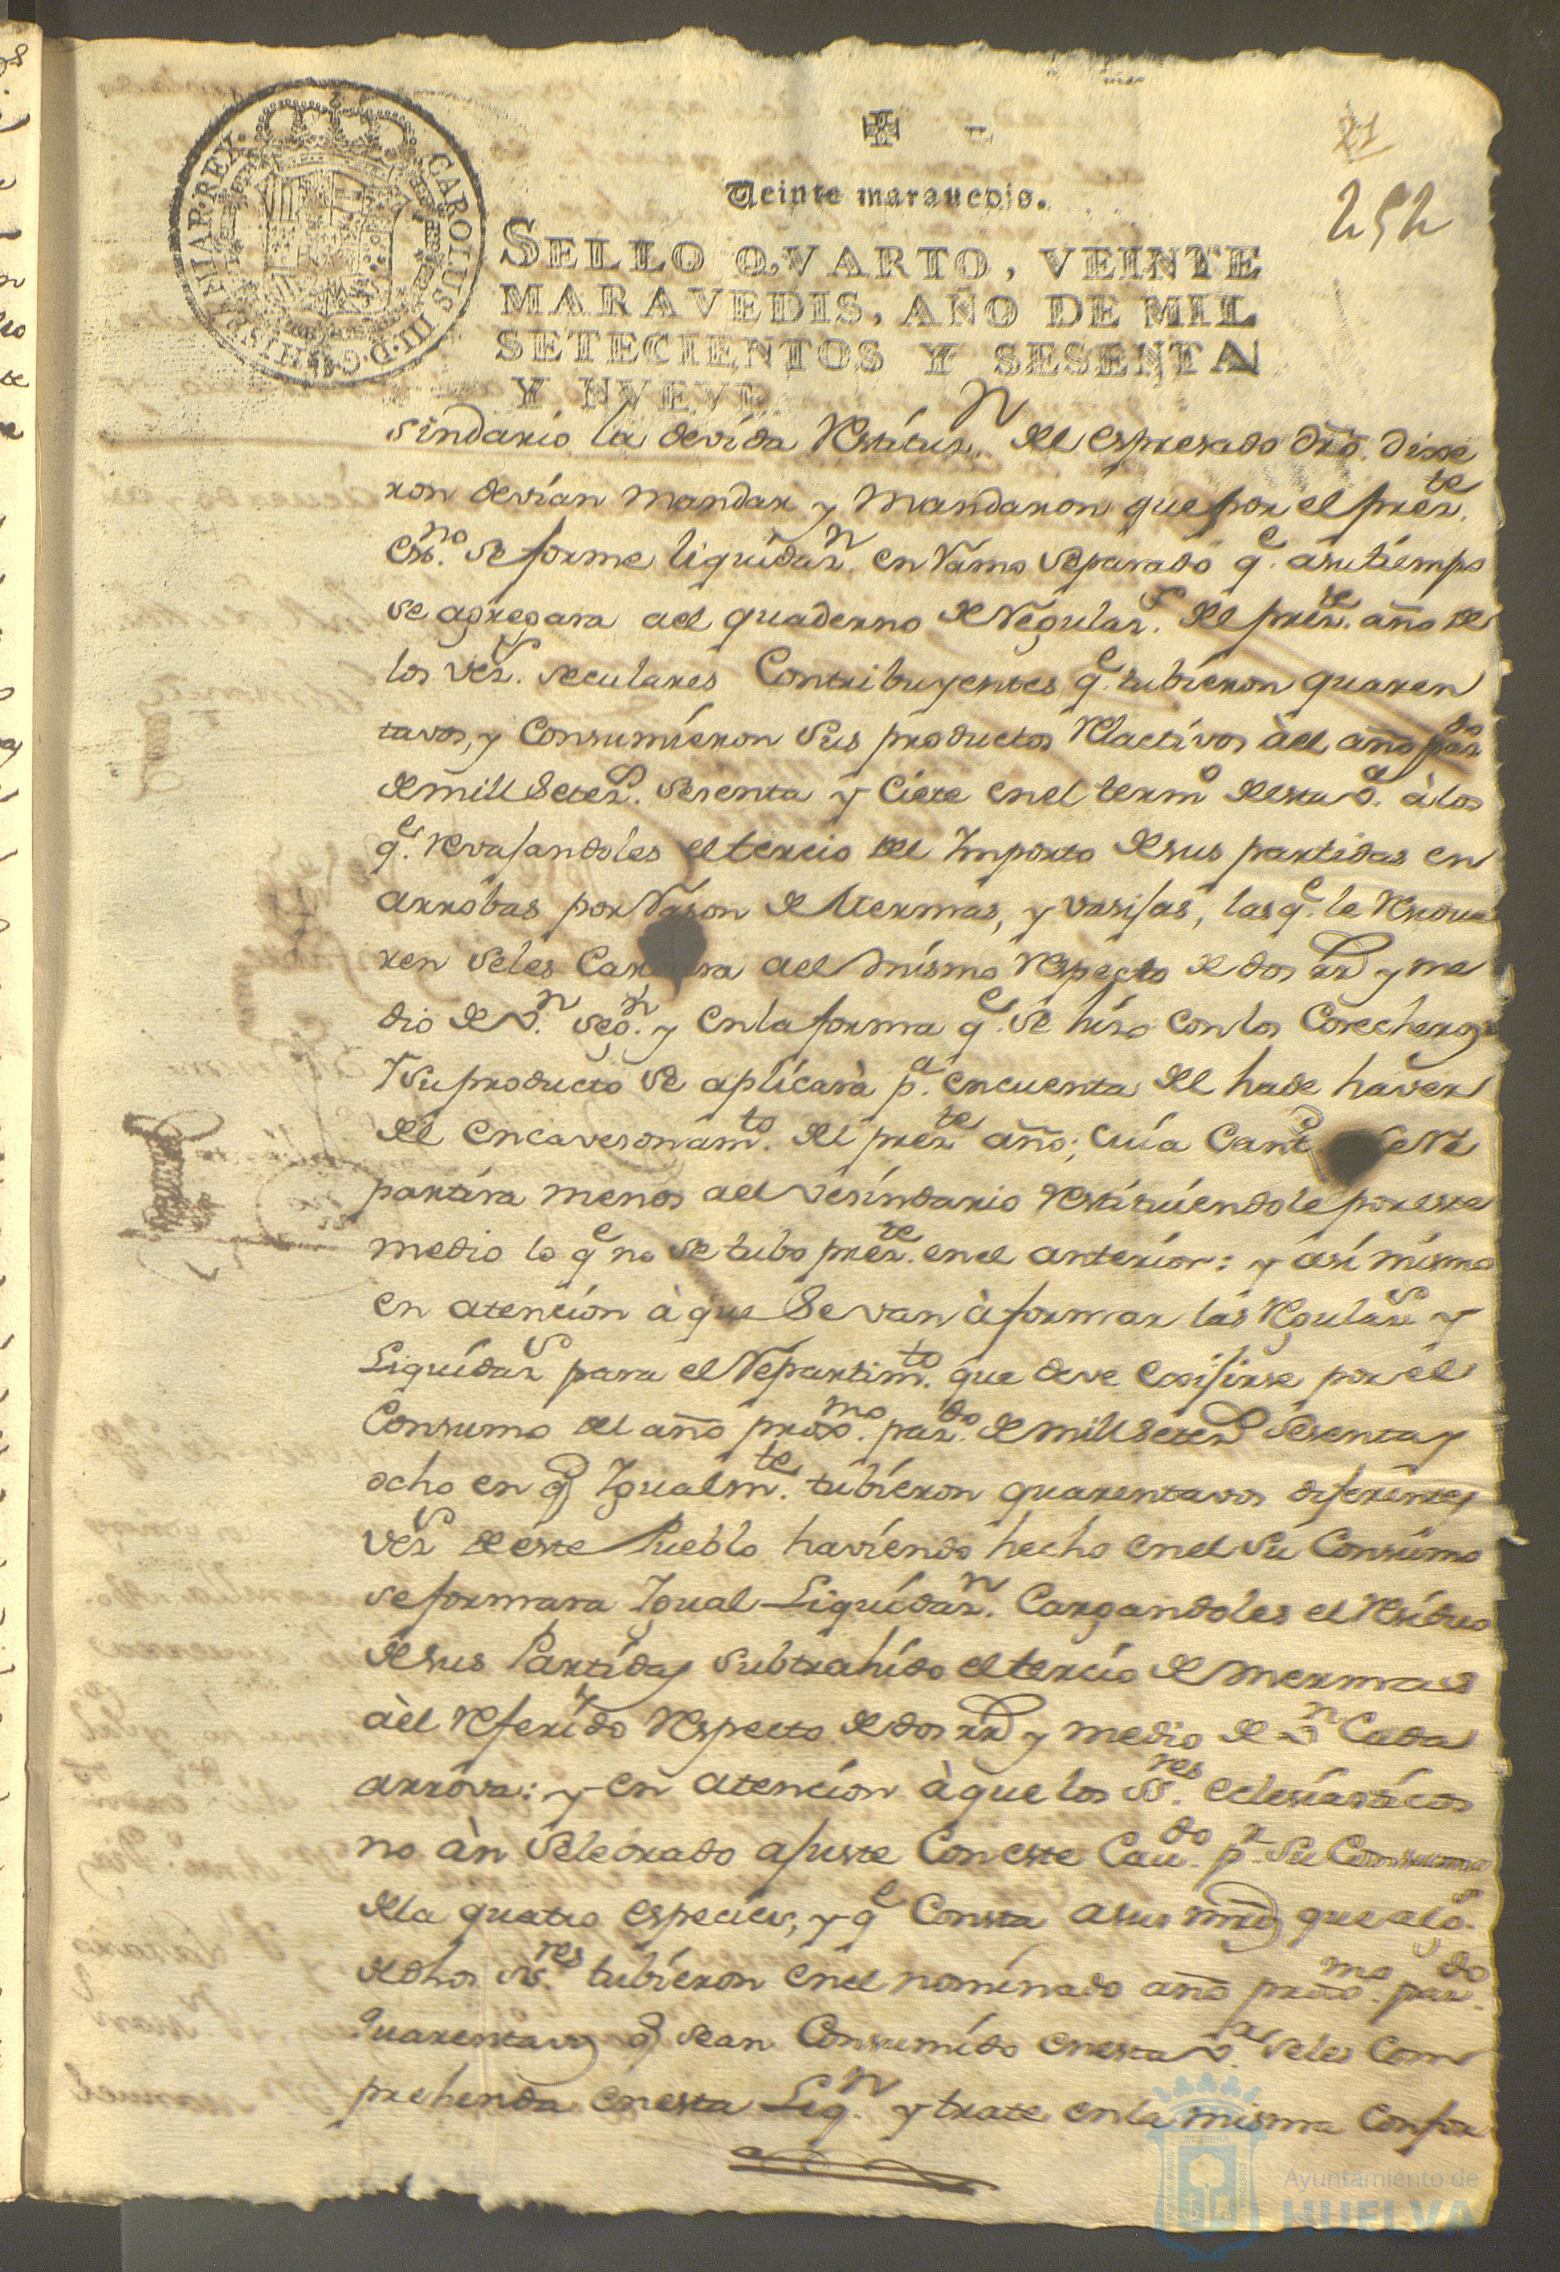 21
252
Veinte marauedis.
CAROLUS III D. G. HISP. ET IND. REX
SELLO QVARTO, VEINTE
MARAVEDIS, AÑO DE MIL
SETECIENTOS Y SESENTA
Y NVEVE
sindario la devida Restituz.n del espresado dño. dixe
ron devian mandar y mandaron que por el prez.te
Ess.no se forme liquidaz.n en Ramo separado q.e a su tiempo
se agregara ael quaderno de Regulaz.s del prez.te año de
los vez.s seculares Contribuyentes q.e tubieron quaren
tavos, y Consumieron sus productos Relactivos àel año paz.do
de mill setez.s sesenta y Ciete en el term.o de esta v.a à los
q.e Revajandoles el tercio del Importo de sus partidas en
arrobas por Rason de Mermas, y vasijas, las q.e le Restua
ren seles Car ra ael mismo Respecto de dos rr.s y me
dio de v.n seg.n y en la forma q.e se hiso con los Cosecheros
Y su producto se aplicarà p.a en cuenta del ha de haver
del encavesonam.to del prez.te año; cuia Cant.d se Re
partira menos ael vesindario Restituiendole por este
medio lo q.e no se tubo prez.te en el anterior: y asi mismo
en atencion à que se van à formar las Regulaz.s y
Liquidaz.s para el Repartim.to que deve Coxijirse por el
Consumo del año prox.mo paz.do de mill setez.s sesenta y
ocho en q.e Igualm.te tubieron quarentavos diferentes
vez.s de este Pueblo haviendo hecho en el su Consumo
se formara Igual Liquidaz.n Cargandoles el Residuo
de sus Partidas subtrahido el tercio de mermas
àel Referido Respecto de dos rr.s y medio de v.n Cada
arrova: y en atencion à que los SS.res eclesiasticos
no àn selebrado ajuste Con este Cav.do p.r su Consumo
de la quatro especies, y q.e Consta a sus mrds que alg.s
de dhos SS.res tubieron en el nominado año prox.mo paz.do
quarentavos q.e sean Consumido en esta v.a seles Com
prehenda en esta Liq.n y trate en la misma Confor
Ayuntamiento de
HUELVA